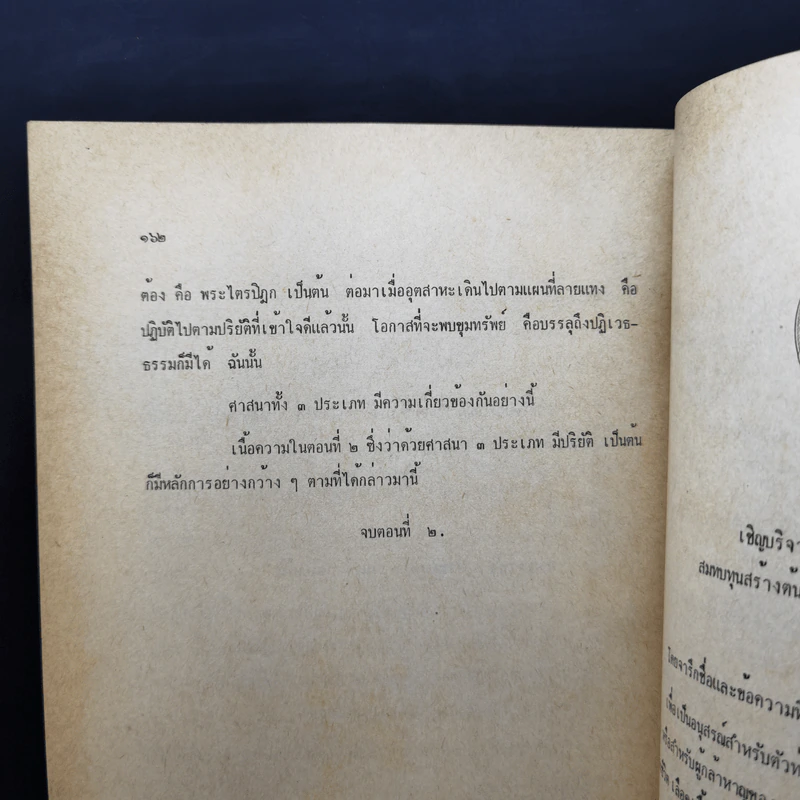 ๑๖๒
ต้อง คือ พระไตรปิฎก เป็นต้น ต่อมาเมื่ออุตสาหะเดินไปตามแผนที่ลายแทง คือ
ปฏิบัติไปตามปริยัติที่เข้าใจดีแล้วนั้น โอกาสที่จะพบขุมทรัพย์ คือบรรลุถึงปฏิเวธ-
ธรรมก็มีได้ ฉันนั้น
ศาสนาทั้ง ๓ ประเภท มีความเกี่ยวข้องกันอย่างนี้
เนื้อความในตอนที่ ๒ ซึ่งว่าด้วยศาสนา ๓ ประเภท มีปริยัติ เป็นต้น
ก็มีหลักการอย่างกว้าง ๆ ตามที่ได้กล่าวมานี้
จบตอนที่ ๒.
เชิญบริจา
สมทบทุนสร้างต้น
โดยจารึกชื่อและข้อความที่
เพื่อเป็นอนุสรณ์สำหรับตัวท่